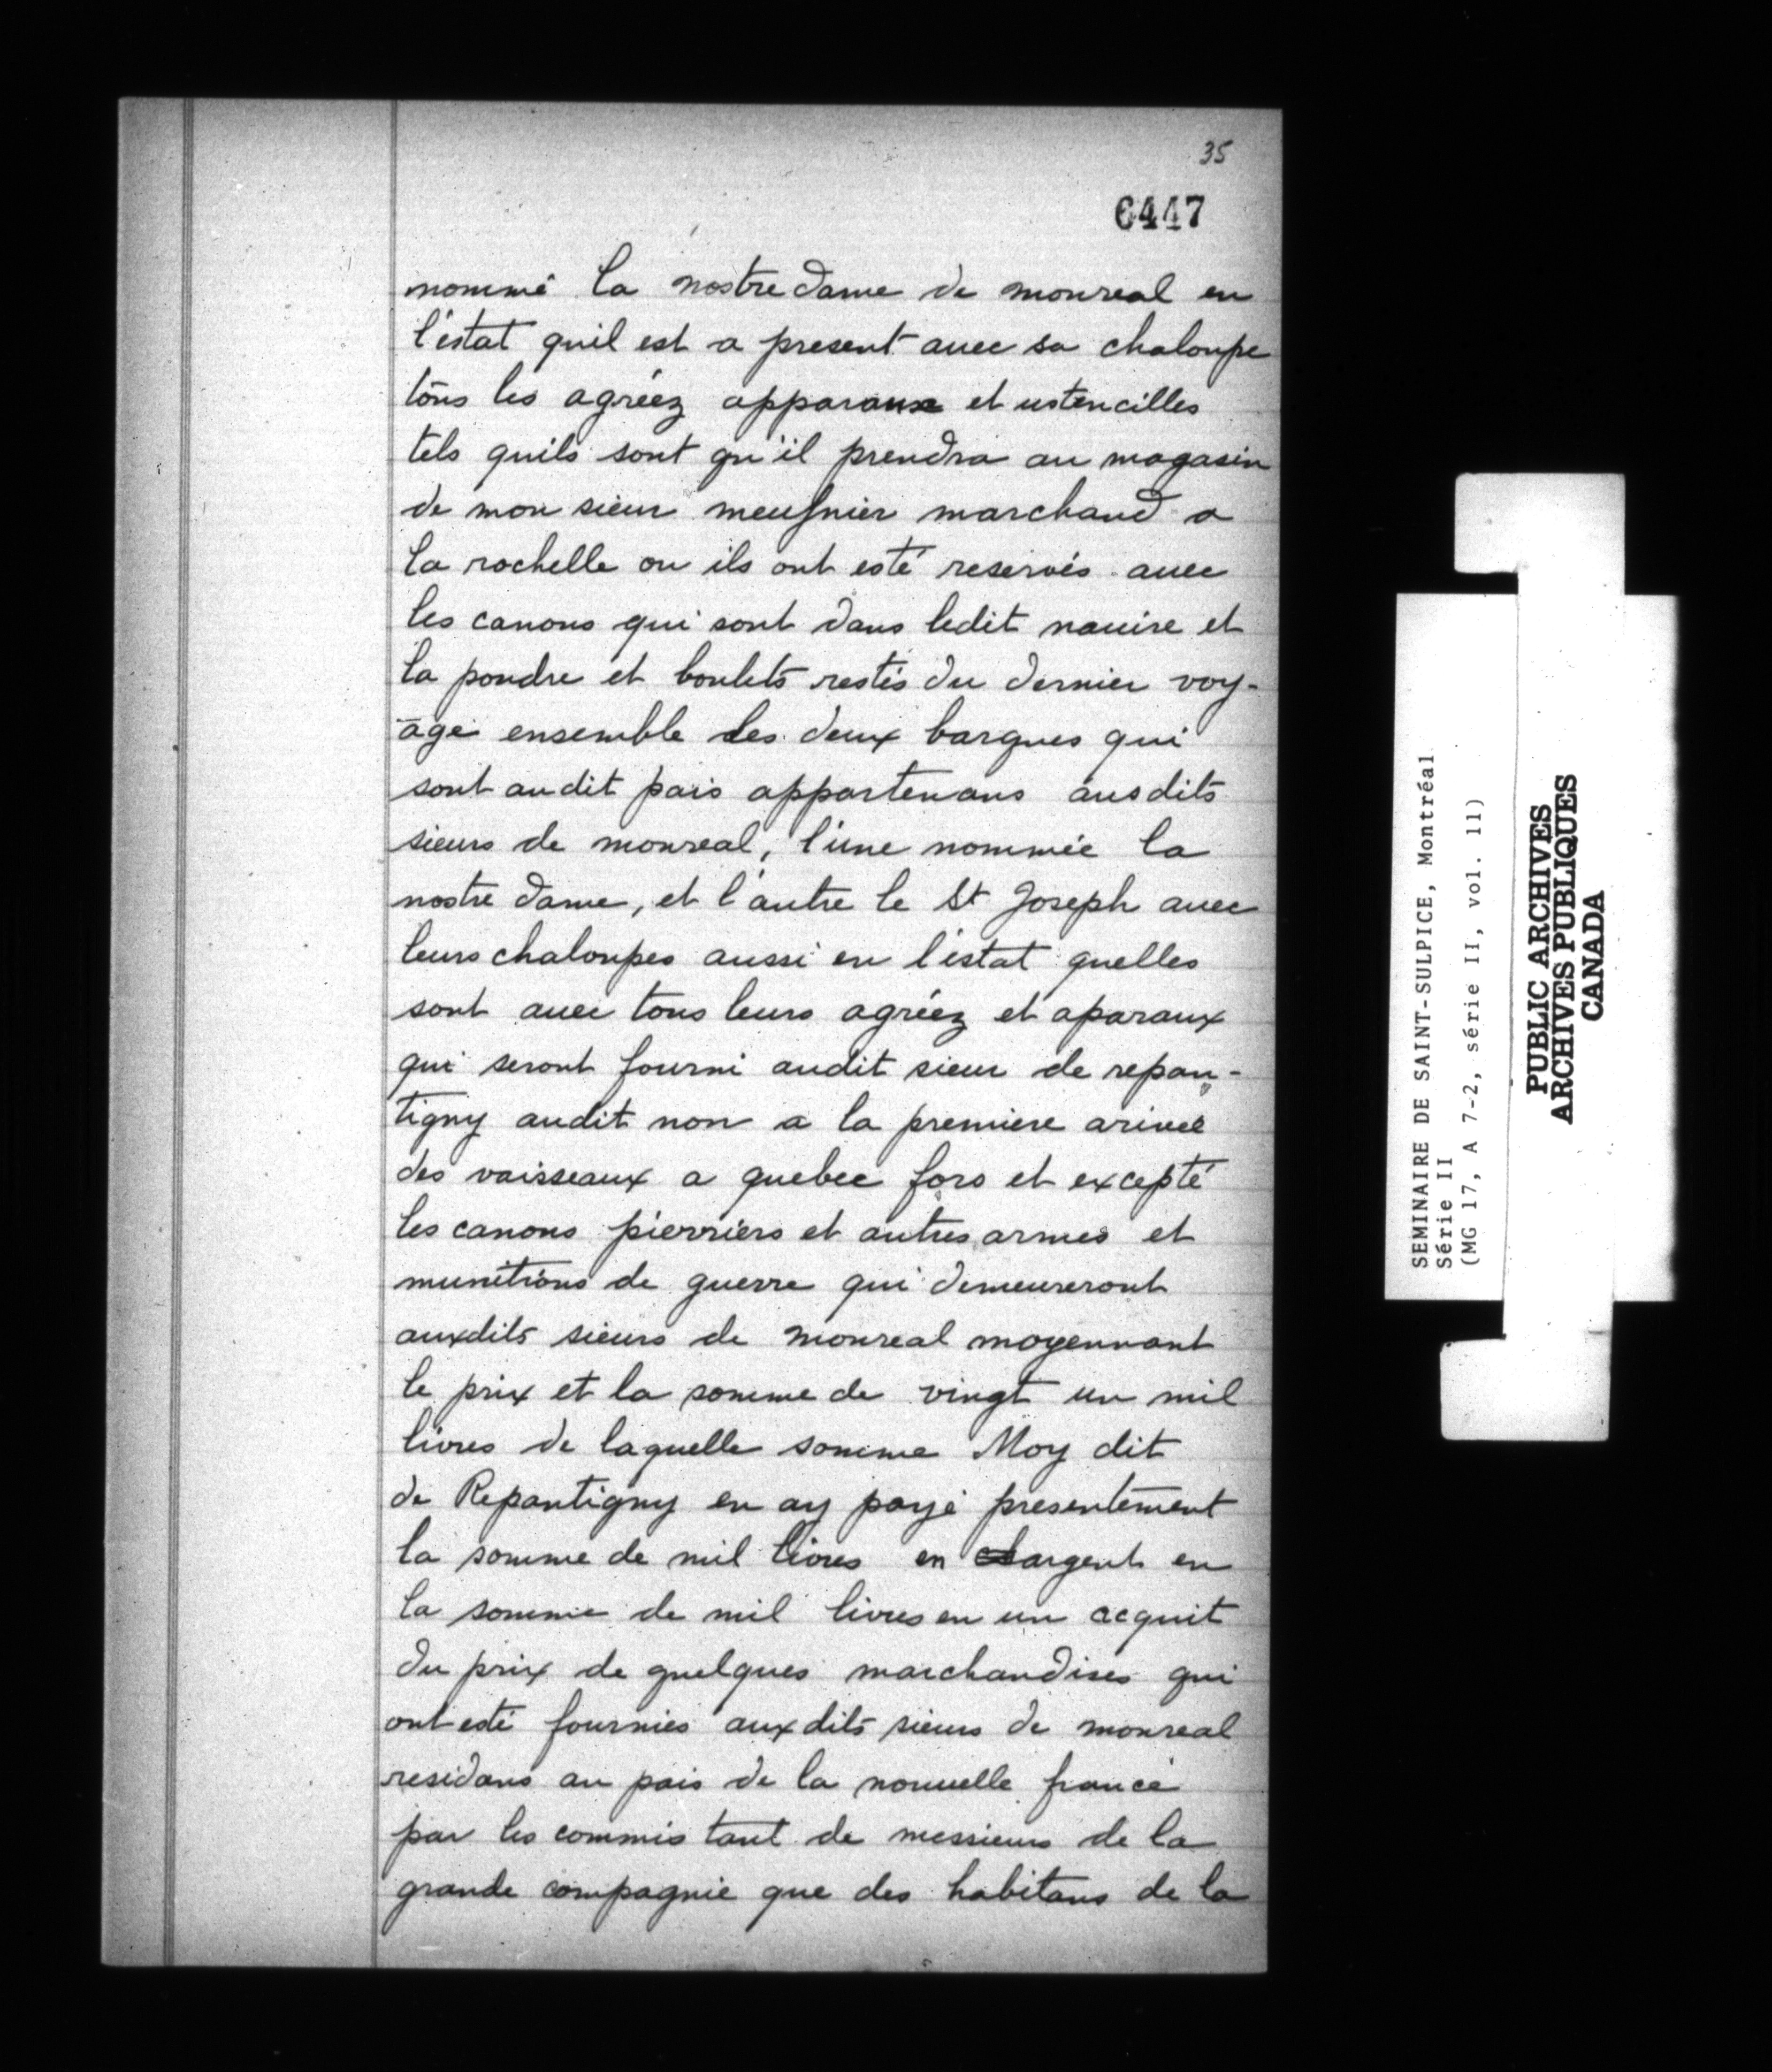 35
6447
nommé la nostre dame de monreal en
l'estat quil est a present auec sa chaloupe
tous les agréez apparaux et ustencilles
tels quils sont qu'il prendra au magasin
de mon sieur meusnier marchand a
la rochelle ou ils ont esté reservés auec
les canons qui sont dans ledit nauire et
la poudre et boulets restés du dernier voy-
age ensemble les deux barques qui
sont audit pais appartenans ausdits
sieurs de monreal, l'une nommée la
nostre dame, et l'autre le St Joseph auec
leurs chaloupes aussi en l'estat quelles
sont auec tous leurs agréez et aparaux
qui seront fourni audit sieur de repan-
tigny audit non a la premiere arivee
des vaisseaux a quebec fors et excepté
les canons pierriers et autres armes et
munitions de guerre qui demeureront
auxdits sieurs de monreal moyennant
le prix et la somme de vingt un mil
livres de laquelle somme Moy dit
de Repantigny en ay payé presentement
la somme de mil livres en argent en
la somme de mil livres en un acquit
du prix de quelques marchandises qui
ont esté fournies aux dits sieurs de monreal
residans au pais de la nouuelle france
par les commis tant de messieurs de la
grande compagnie que des habitans de la
SEMINAIRE DE SAINT-SULPICE, Montréal
Série II
(MG 17, A 7-2, série II, vol. 11)
PUBLIC ARCHIVES
ARCHIVES PUBLIQUES
CANADA